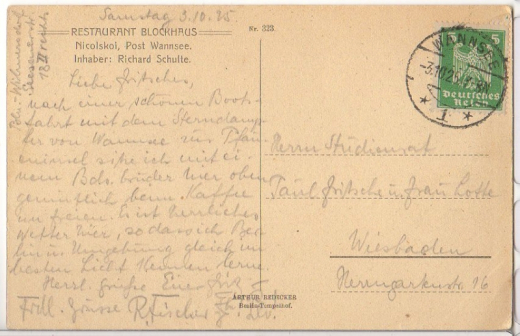 Samstag 3.10.25
RESTAURANT BLOCKHAUS
Nicolskoi, Post Wannsee.
Inhaber: Richard Schulte.
Liebe Fritsches,
nach einer schönen Boots-
fahrt mit dem Sterndamp-
fer von Wannsee zur Pfau-
eninsel sitze ich mit ei-
nem Bds. bruder hier oben
gemütlich beim Kaffee
im Freien. Es ist herrliches
Wetter hier, so dass ich Ber-
lin u. Umgebung gleich im
besten Licht kennen lerne.
Herzl. Grüße Euer Fritz
Frdl. Grüsse R. Fischer
Bln.-Wilmersdorf
18 II rechts
Nr. 323.
WANNSEE
5
Deutsches
Reich
Herrn Studienrat
Paul Fritsche u. Frau Lotte
Wiesbaden
ARTHUR REINECKER
Berlin-Tempelhof.